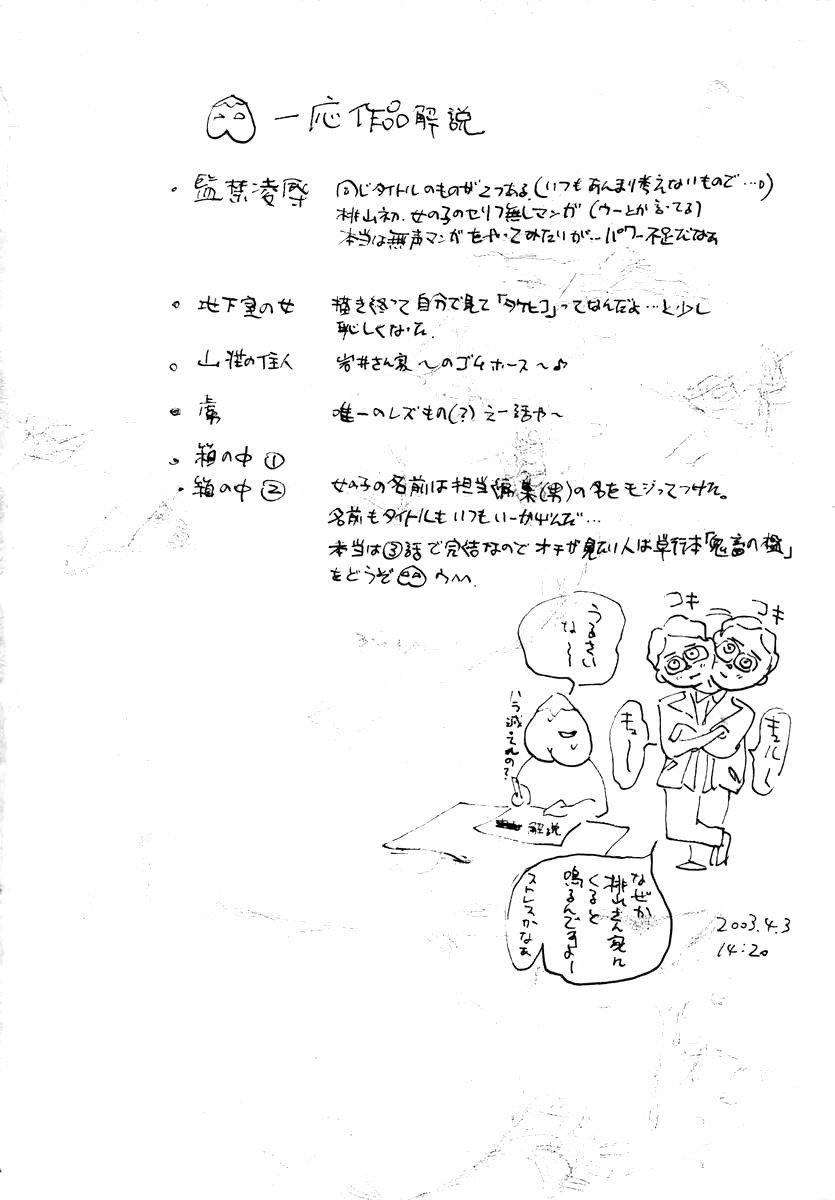 一応作品解説
・監禁凌辱 同じタイトルのものが2つある。(いつもあんまり考えないもので…。)
桃山初、女の子のセリフ無しマンガ (ウーとか言ってる)
本当は無声マンガをやってみたいが…パワー不足だなぁ
・地下室の女 描き終って自分で見て「タケヒコ」ってなんだよ…と少し
恥しくなった。
・山荘の住人 岩井さん家〜のゴムホース〜♪
・ 唯一のレズもの(?) えー話や〜
・箱の中①
・箱の中② 女の子の名前は担当編集(男)の名をモジってつけた。
名前もタイトルもいつもいーかげんだ…
本当は③話で完結なのでオチが見たい人は単行本「鬼畜の檻」
をどうぞ
コキ
コキ
うるさい
な〜〜
ハラ減ってんの?
キュー
キュルル
解説
なぜか
桃山さん家に
くると
鳴るんですよー
ストレスかなぁ
2003.4.3
14:20